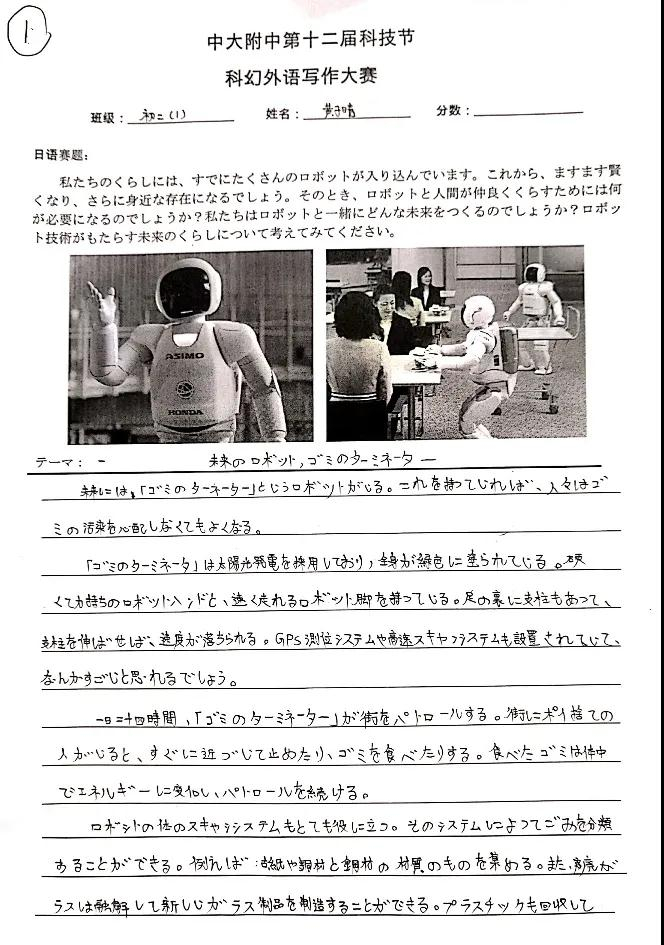 1
中大附中第十二届科技节
科幻外语写作大赛
班级： 初二(1) 姓名： 黄子晴 分数：
日语赛题：
私たちのくらしには、すでにたくさんのロボットが入り込んでいます。これから、ますます賢
くなり、さらに身近な存在になるでしょう。そのとき、ロボットと人間が仲良くくらすためには何
が必要になるのでしょうか？私たちはロボットと一緒にどんな未来をつくるのでしょうか？ロボッ
ト技術がもたらす未来のくらしについて考えてみてください。
ASIMO
HONDA
テーマ： - 未来のロボット,ゴミのターミネーター
未来には、「ゴミのターネーター」というロボットがいる。これを持っていれば、人々はゴ
ミの汚染を心配しなくてもよくなる。
「ゴミのターミネータ」は太陽光発電を採用しており，全身が緑色に塗られている。硬
くて力持ちのロボットハンドと、速く走れるロボット脚を持っている。足の裏に支柱もあって、
支柱を伸ばせば、速度が落ちられる。GPS測位システムや高速スキャンシステムも設置されていて、
なんかすごいと思れるでしょう。
一日二十四時間，「ゴミのターミネーター」が街をパトロールする。街にポイ捨ての
人がいると、すぐに近づいて止めたり、ゴミを食べたりする。食べたゴミは体中
でエネルギーに変化し、パトロールを続ける。
ロボットの他のスキャンシステムもとても役に立つ。そのシステムによってごみを分類
することができる。例えば：古紙や鋼材と銅材の材質のものを集める。また、廃ガ
ラスは融解して新しいガラス制品を制造することができる。プラスチックも回収して